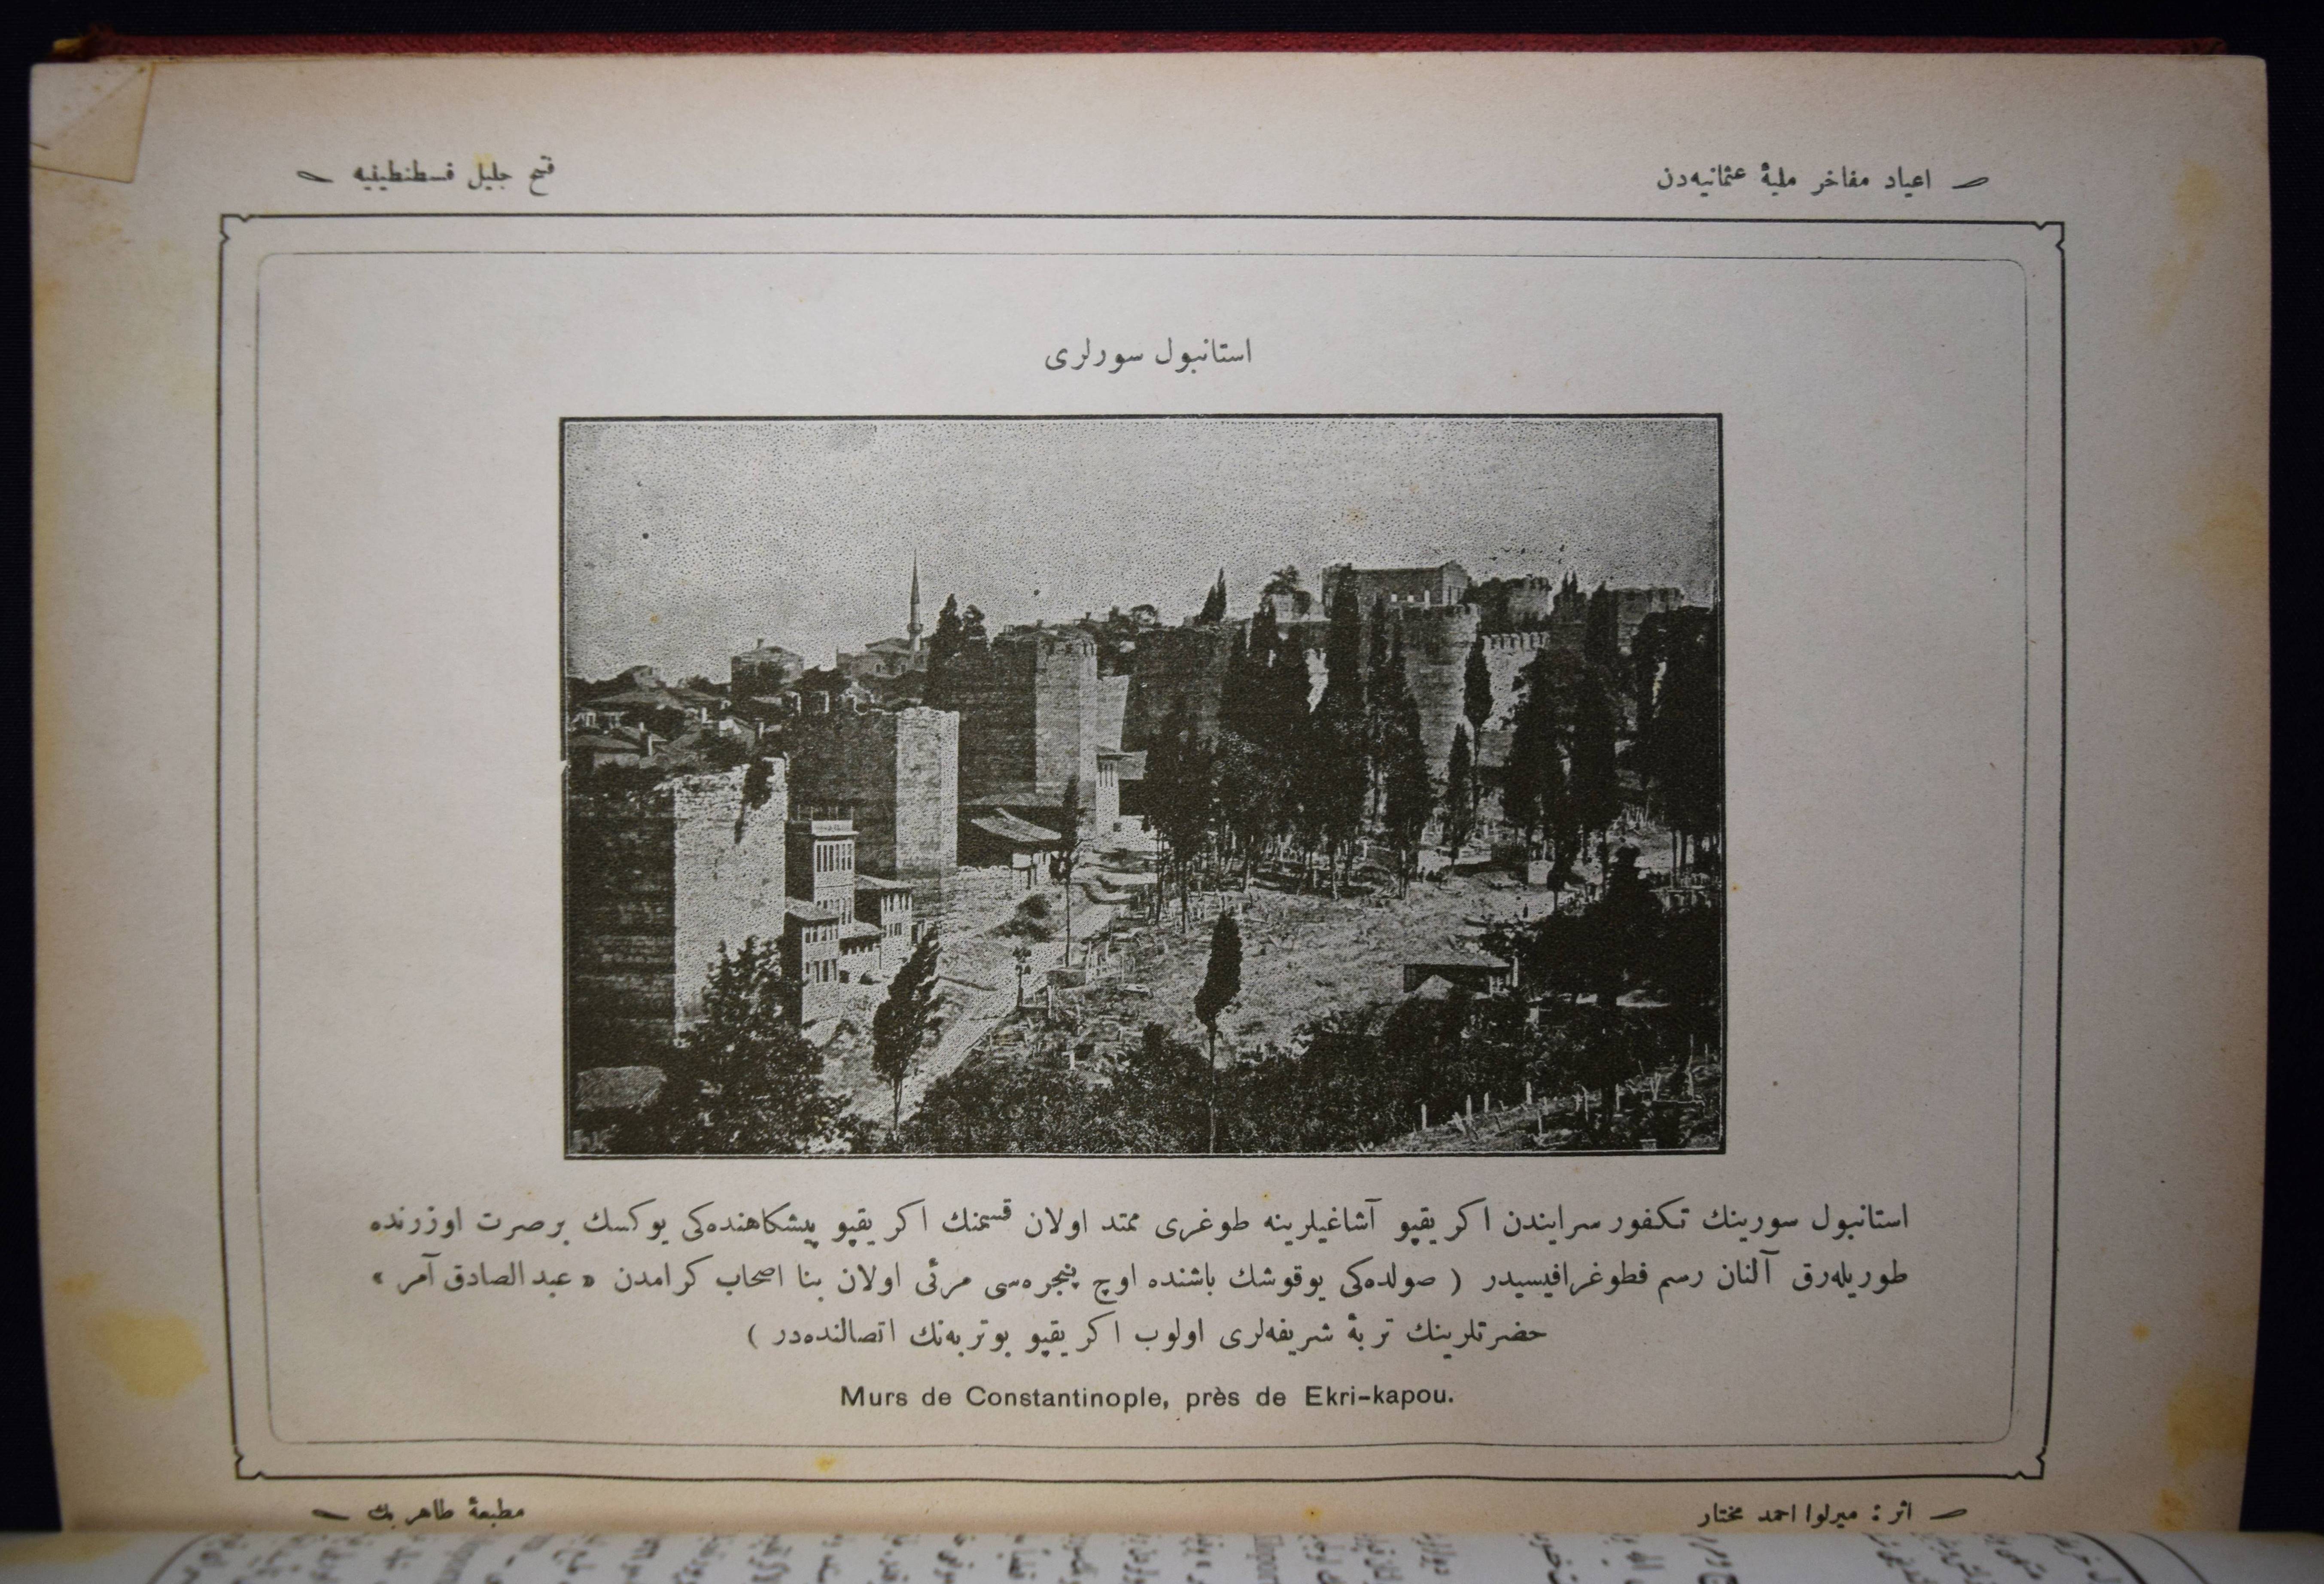 اعياد مفاخر مليۀ عثمانيه‌دن
فتح جليل قسطنطينيه
استانبول سورلری
استانبول سورينك تكفور سرايندن اكری‌قپو آشاغيلرينه طوغری ممتد اولان قسمنك اكری‌قپو پيشكاهنده‌كی يوكسك برصرت اوزرنده
طوريله‌رق آلنان رسم فطوغرافيسيدر ( صولده‌كی يوقوشك باشنده اوچ پنجره‌سی مرئی اولان بنا اصحاب كرامدن « عبد الصادق آمر »
حضرتلرينك تربۀ شريفه‌لری اولوب اكری‌قپو بوتربه‌نك اتصالنده‌در )
Murs de Constantinople, près de Ekri-kapou.
اثر : ميرلوا احمد مختار
مطبعۀ طاهر بك